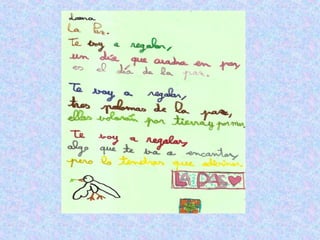 Laura
La Paz.
Te voy a regalar,
un día que acaba en paz
es el día de la paz.
Te voy a regalar,
tres palomas de la paz,
ellas volarán por tierra y por mar.
Te voy a regalar,
algo que te va a encantar,
pero lo tendras que adivinar
LA PAZ